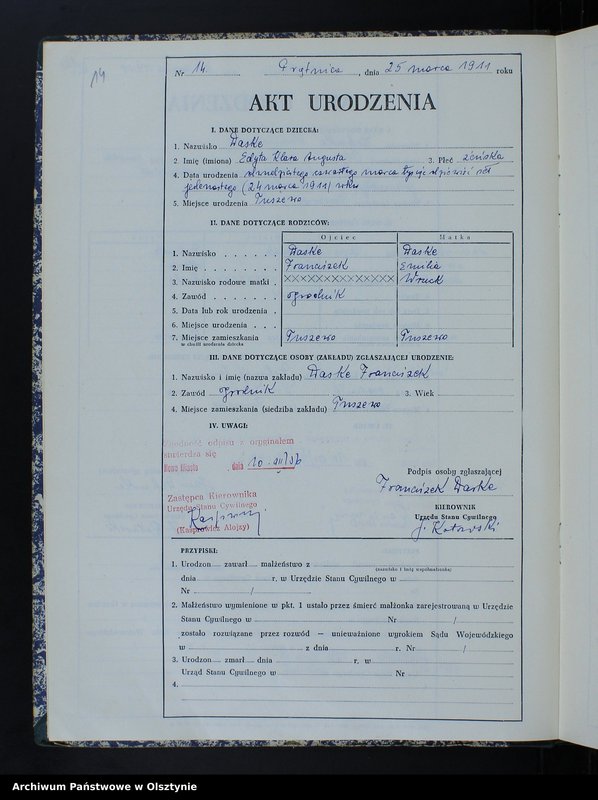 14
Nr 14 Prątnica, dnia 25 marca 1911 roku
AKT URODZENIA
I. DANE DOTYCZĄCE DZIECKA:
1. Nazwisko Daske
2. Imię (imiona) Edyta Klara Augusta 3. Płeć żeńska
4. Data urodzenia czwartego marca tysiąc set
jedenastego (24 marca 1911) roku
5. Miejsce urodzenia Tuszewo
II. DANE DOTYCZĄCE RODZICÓW:
Ojciec Matka
1. Nazwisko Daske Daske
2. Imię Franciszek Emilia
3. Nazwisko rodowe matki XXXXXXXXXXXXX Wruck
4. Zawód ogrodnik
5. Data lub rok urodzenia
6. Miejsce urodzenia
7. Miejsce zamieszkania Tuszewo Tuszewo
w chwili urodzenia dziecka
III. DANE DOTYCZĄCE OSOBY (ZAKŁADU) ZGŁASZAJĄCEJ URODZENIE:
1. Nazwisko i imię (nazwa zakładu) Daske Franciszek
2. Zawód ogrodnik 3. Wiek
4. Miejsce zamieszkania (siedziba zakładu) Tuszewo
IV. UWAGI:
Zgodność odpisu z oryginałem
stwierdza się
Nowe Miasto, dnia 10.
Podpis osoby zgłaszającej
Franciszek Daske
Zastępca Kierownika
Urzędu Stanu Cywilnego
(Kasprowicz Alojzy)
KIEROWNIK
Urzędu Stanu Cywilnego
J. Kotowski
PRZYPISKI:
1. Urodzon zawarł małżeństwo z
(nazwisko i imię współmałżonka)
dnia r. w Urzędzie Stanu Cywilnego w
Nr /
2. Małżeństwo wymienione w pkt. 1 ustało przez śmierć małżonka zarejestrowaną w Urzędzie
Stanu Cywilnego w Nr /
zostało rozwiązane przez rozwód — unieważnione wyrokiem Sądu Wojewódzkiego
w z dnia r. Nr /
3. Urodzon zmarł dnia r. w
Urząd Stanu Cywilnego w Nr
4.
Archiwum Państwowe w Olsztynie